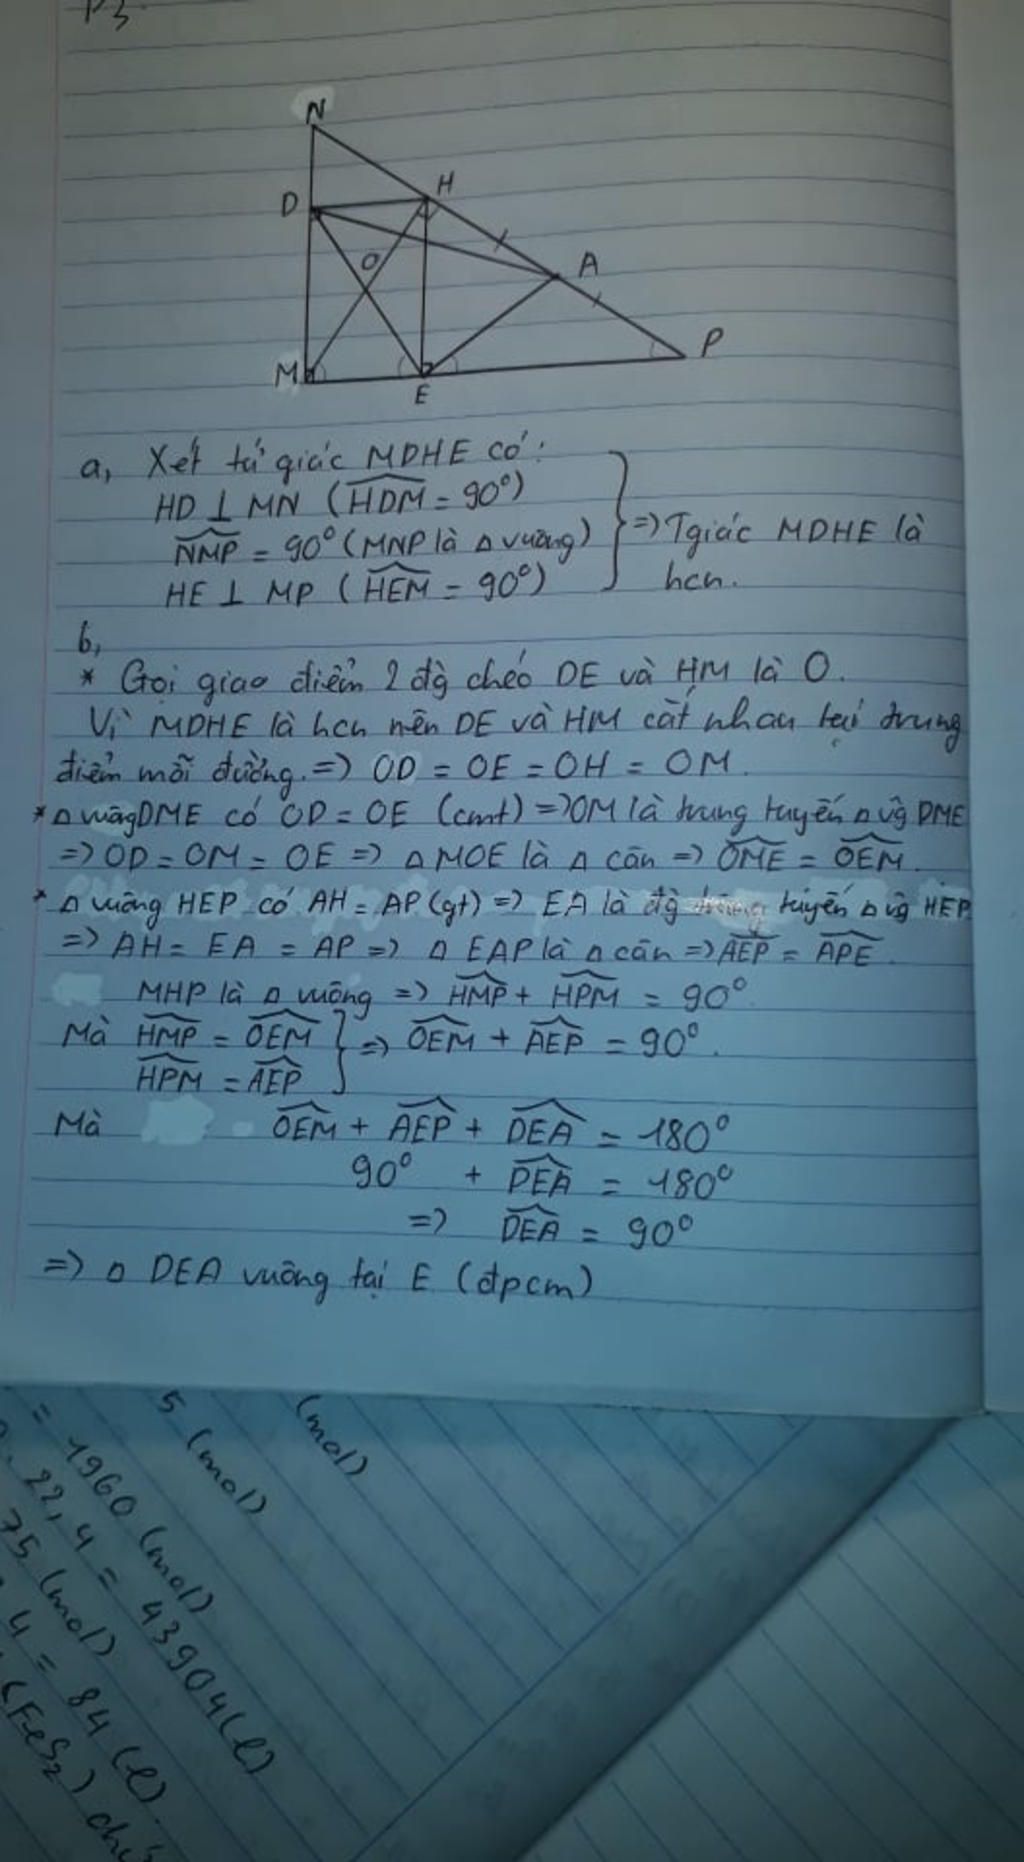 P3.
N
D
H
O
A
M
E
P
a, Xét tứ giác MDHE có:
HD ⊥ MN (HDM = 90°)
NMP = 90° (MNP là Δ vuông)
HE ⊥ MP (HEM = 90°)
=> Tgiác MDHE là
hcn.
b,
* Gọi giao điểm 2 đg chéo DE và HM là O.
Vì MDHE là hcn nên DE và HM cắt nhau tại trung
điểm mỗi đường. => OD = OE = OH = OM.
* Δ vuông DME có OD = OE (cmt) => OM là trung tuyến Δ vg DME
=> OD = OM = OE => Δ MOE là Δ cân => OME = OEM.
* Δ vuông HEP có AH = AP (gt) => EA là đg trung tuyến Δ vg HEP
=> AH = EA = AP => Δ EAP là Δ cân => AEP = APE.
MHP là Δ vuông => HMP + HPM = 90°.
Mà HMP = OEM
HPM = AEP
=> OEM + AEP = 90°.
Mà OEM + AEP + DEA = 180°
90° + DEA = 180°
=> DEA = 90°
=> Δ DEA vuông tại E (đpcm)
5 (mol)
(mol)
= 1960 (mol)
22,4 = 43904 (l)
75 (mol)
4 = 84 (l).
(FeS2)